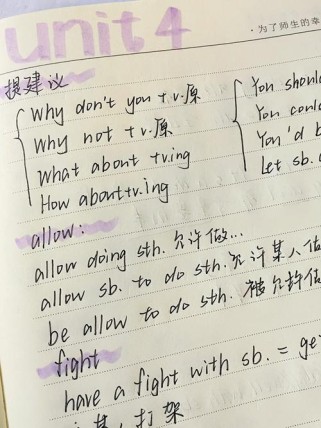 unit 4
·为了师生的幸
提建议
Why don't you + v.原
Why not + v.原
What about +v.ing
How about+v.ing
You should
You could
You'd b
Let sb.
allow:
allow doing sth. 允许做...
allow sb. to do sth. 允许某人做
be allow to do sth. 被允许做
fight
have a fight with sb. = ge
打架